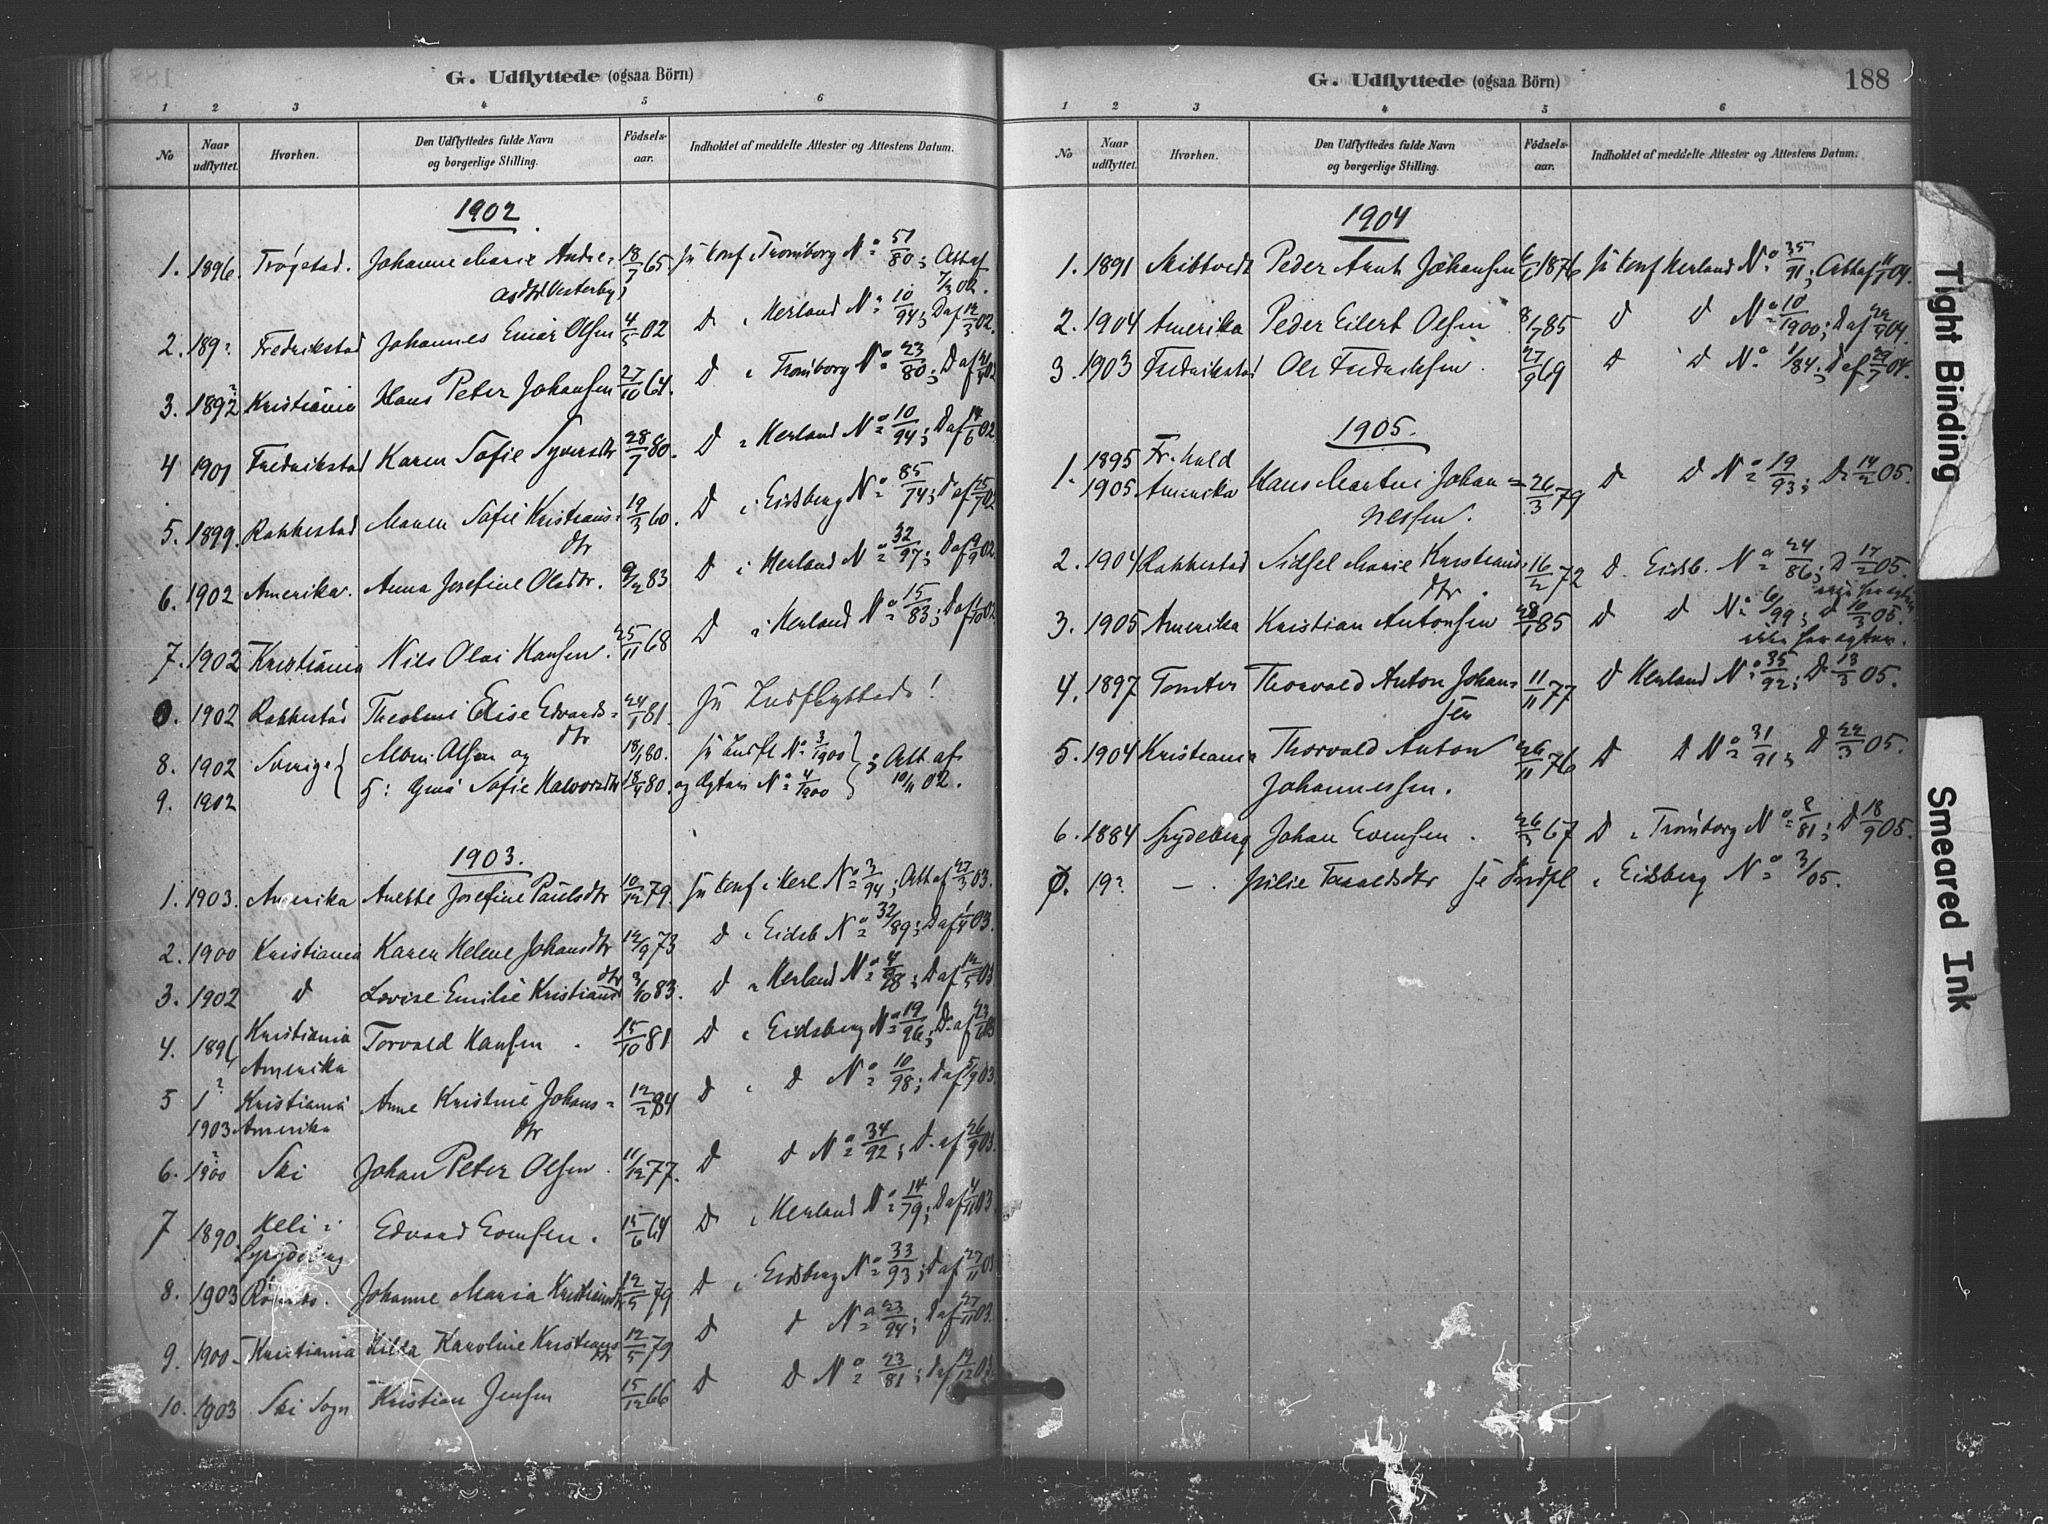 G. Udflyttede (ogsaa Börn)
1 2 3 4 5 6
No Naar udflyttet. Hvorhen. Den Udflyttedes fulde Navn og borgerlige Stilling. Födsels-aar. Indholdet af meddelte Attester og Attestens Datum.
1902
1. 1896. Trøgstad. Johanne Marie Andre- 18/7 65 Trømborg No 51/80; Att af 7/3 02.
2. 189? Fredrikstad Johannes Einar Olsen 4/5 02 D Herland No 10/94; D af 12/3 02.
3. 1892? Kristiania Hans Peter Johansen 27/10 64. D Trømborg No 23/80; D af
4 1901 Fredrikstad Karen Sofie Syversdtr 28/7 80. D Herland No 10/94; D af 14/6 02
5. 1899. Rakkestad Maren Sofie Kristians-
dtr 19/3 60. D i Eidsberg No 85/74; D af 25/7 02
6. 1902 Amerika. Anna Josefine Olsdtr. 9/12 83 D i Herland No 32/97; D af 9/9 02.
7. 1902 Kristiania Nils Olai Hansen. 25/11 68 D i Herland No 15/83; D af
0. 1902 Rakkestad Elise Edvards-
dtr 24/1 81. Indflyttede!
8. 1902 Sverige Olsen og 18/1 80. No 3/1900 ; Att af
9. 1902 Sofie Halvorsdtr 18/4 80. og No 4/1900 10/11 02.
1903.
1. 1903. Amerika Anette Josefine Paulsdtr 10/12 79. konf i Herl No 3/94; Att af 27/3 03.
2. 1900 Kristiania Karen Helene Johansdtr 12/9 73 D i Eidsb No 32/89; D af 1/4 03.
3. 1902 D Lovise Emilie Kristiansdtr 3/10 83. D Herland No 4/98; D af 12/5 03
4. 189 Kristiania
Amerika Torvald Hansen. 15/10 81 D Eidsberg No 19/96; D. af
5 1? Kristiania
1903 Amerika Anne Kristine Johans-
dtr 12/2 84 D D No 10/98; D af 5/9 03.
6. 1900? Ski Johan Peter Olsen. 11/12 77. D D No 34/92; D. af 26/9 03.
7 1890. Heli i
Spydeberg Edvard Evensen. 15/6 64 D Herland No 14/79; D af 4/11 03
8. 1903 Johanne Maria Kristiansdtr 12/5 79 D i Eidsberg No 33/93; D af 27/11 03
9. 1900- Kristiania Hilda Karoline Kristians
dtr 12/5 79 D D No 23/94; D af 27/11 03.
10. 1903 Ski Sogn Kristian Jensen 15/12 66 D D No 23/81; D af 19/12 03.
G. Udflyttede (ogsaa Börn) 188
1 2 3 4 5 6
No Naar udflyttet. Hvorhen. Den Udflyttedes fulde Navn og borgerlige Stilling. Födsels-aar. Indholdet af meddelte Attester og Attestens Datum.
1904
1. 1891 Skibtvedt Peder Arnt Johansen 6/1 1876 konf Herland No 35/91; Att af 11/1 04.
2. 1904 Amerika Peder Eilert Olsen 8/7 85 D D No 10/1900; D af
3. 1903 Fredrikstad Ole Fredriksen. 27/9 69 D D No 1/84; D af
1905.
1. 1895 Fr. hald
1905 Amerika Hans Martin Johan=
nessen. 26/3 79 D D No 19/93; D. 14/2 05.
2. 1904 Rakkestad Sidsel Marie Kristians
dtr. 16/12 72 D. Eidsb. No 24/86; D 17/2 05.
3. 1905 Amerika Kristian Antonsen 28/1 85 D D No 6/99; D 10/3 05.
4. 1897 Tomter Thorvald Anton Johan-
sen 11/11 77 D Herland No 35/92; D. 13/3 05.
5. 1904 Kristiania Thorvald Anton
Johannessen. 26/11 76 D D No 31/91; D 22/3 05.
6. 1884 Spydeberg Johan Evensen. 26/3 67 D Trømborg No 8/81; D 18/9 05.
0. 19? - . Julie Indfl i Eidsberg No 3/05.
Tight Binding
Smeared Ink